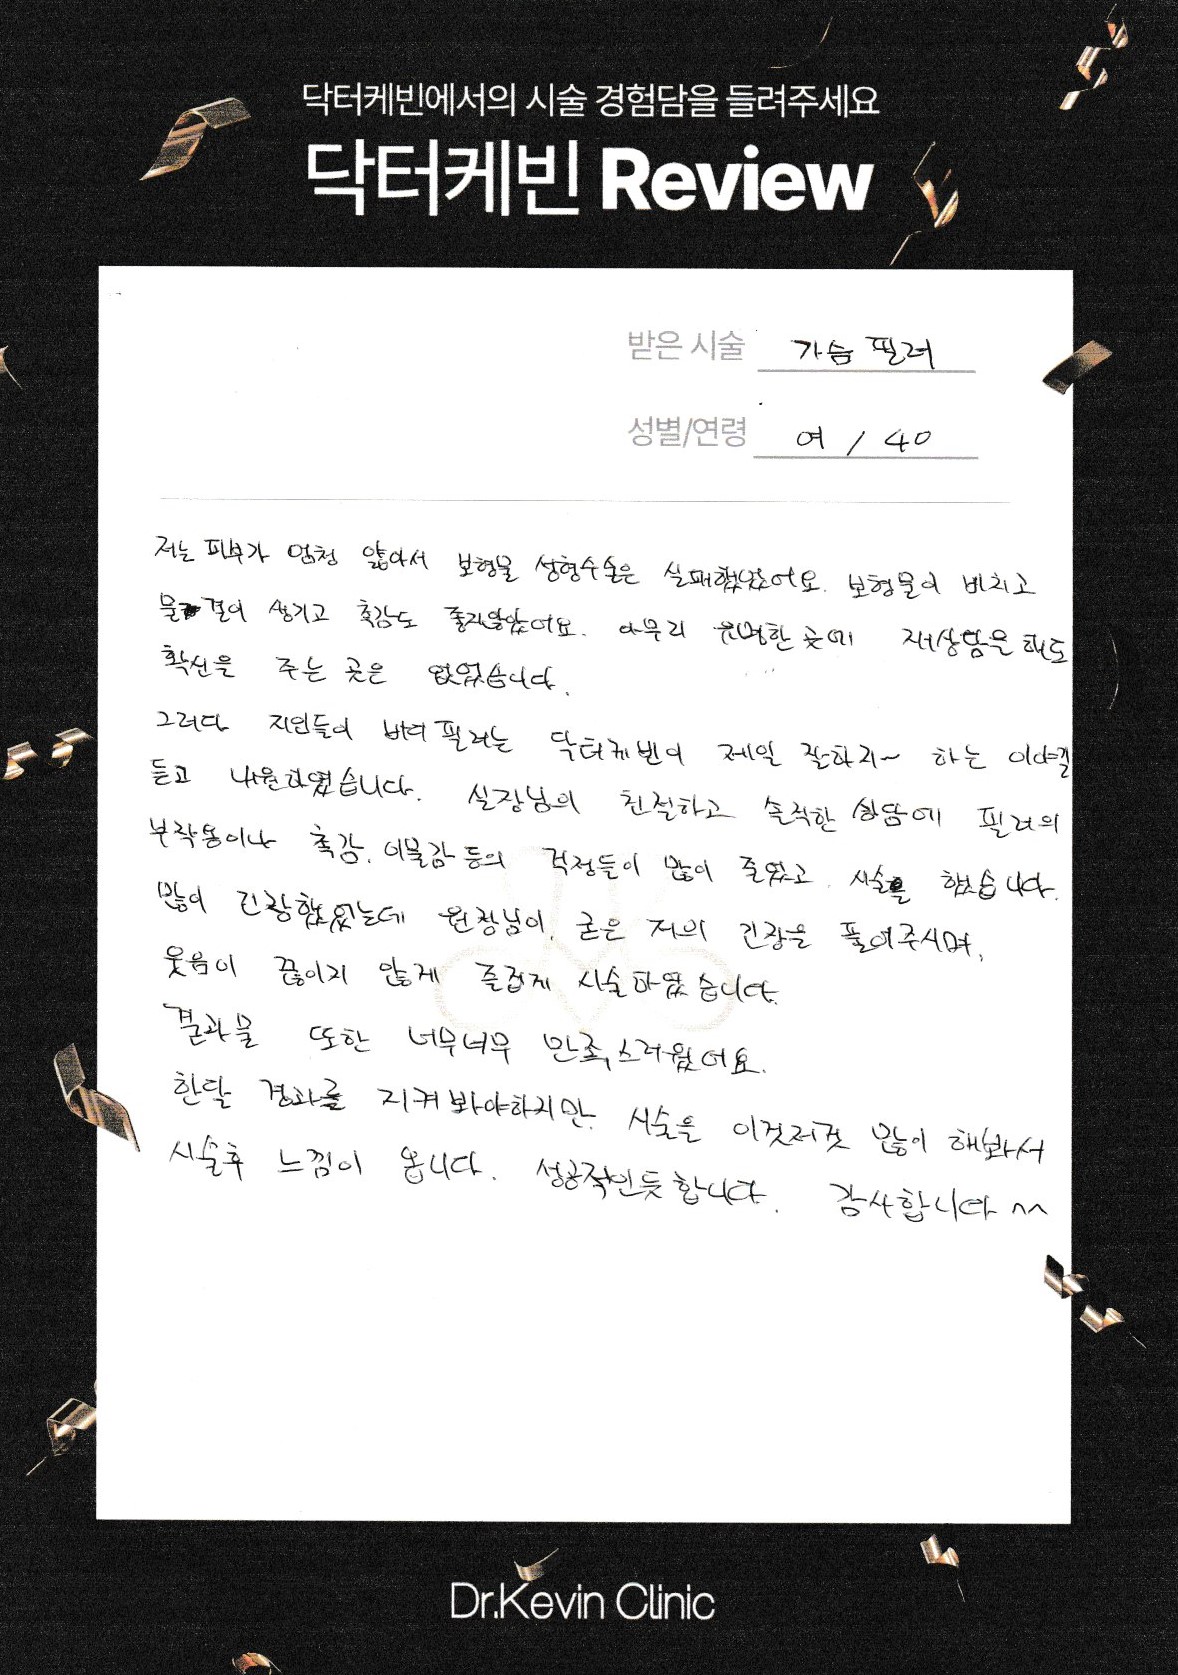 닥터케빈에서의 시술 경험담을 들려주세요
닥터케빈 Review
받은 시술 가슴 필러
성별/연령 여 / 40
저는 피부가 엄청 얇아서 보형물 성형수술은 실패했었어요. 보형물이 비치고
물결이 생기고 촉감도 좋지않았어요. 아무리 유명한 곳에 재상담을 해도
확신을 주는 곳은 없었습니다.
그러다 지인들이 바디필러는 닥터케빈이 제일 잘하지~ 하는 이야길
듣고 내원하였습니다. 실장님의 친절하고 솔직한 상담에 필러의
부작용이나 촉감, 이물감 등의 걱정들이 많이 줄었고, 시술을 했습니다.
많이 긴장했었는데 원장님이, 굳은 저의 긴장을 풀어주시며,
웃음이 끊이지 않게 즐겁게 시술하였습니다.
결과물 또한 너무너무 만족스러웠어요.
한달 경과를 지켜봐야하지만, 시술을 이것저것 많이 해봐서
시술후 느낌이 옵니다. 성공적인듯합니다. 감사합니다 ^^
Dr.Kevin Clinic